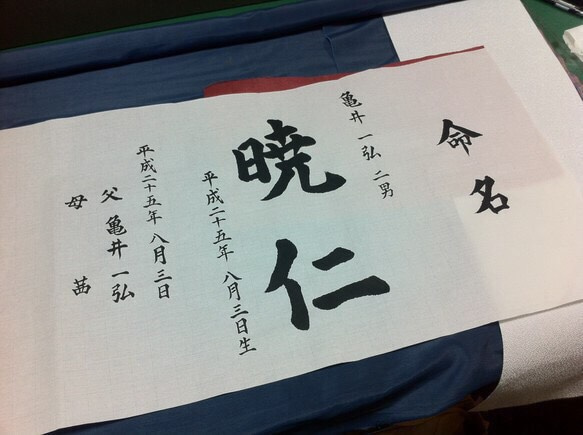 命名
亀井一弘二男
暁仁
平成二十五年八月三日生
平成二十五年八月三日
父亀井一弘
母茜